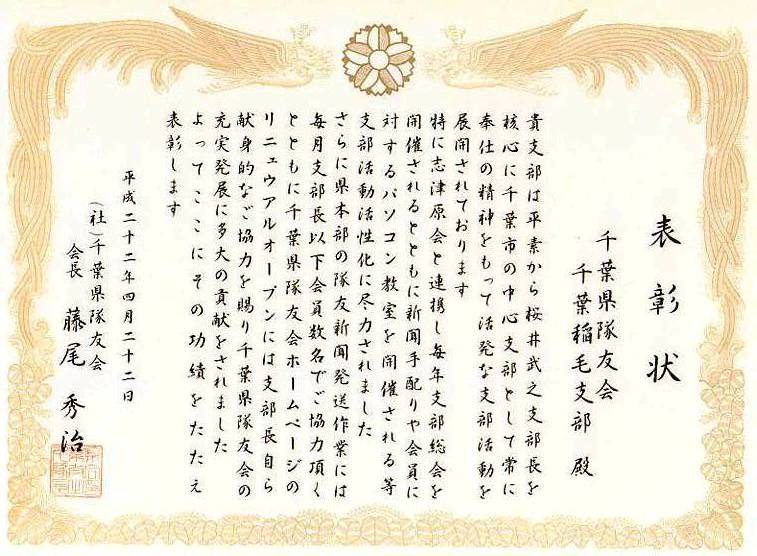 表彰状
千葉県隊友会
千葉稲毛支部 殿
貴支部は平素から桜井武之支部長を
核心に千葉市の中心支部として常に
奉仕の精神をもって活発な支部活動を
展開されております
特に志津原会と連携し毎年支部総会を
開催されるとともに新聞手配りや会員に
対するパソコン教室を開催される等
支部活動活性化に尽力されました
さらに県本部の隊友新聞発送作業には
毎月支部長以下会員数名でご協力頂く
とともに千葉県隊友会ホームページの
リニュウアルオープンには支部長自ら
献身的なご協力を賜り千葉県隊友会の
充実発展に多大の貢献をされました
よってここにその功績をたたえ
表彰します
平成二十二年四月二十二日
(社)千葉県隊友会
会長 藤尾秀治